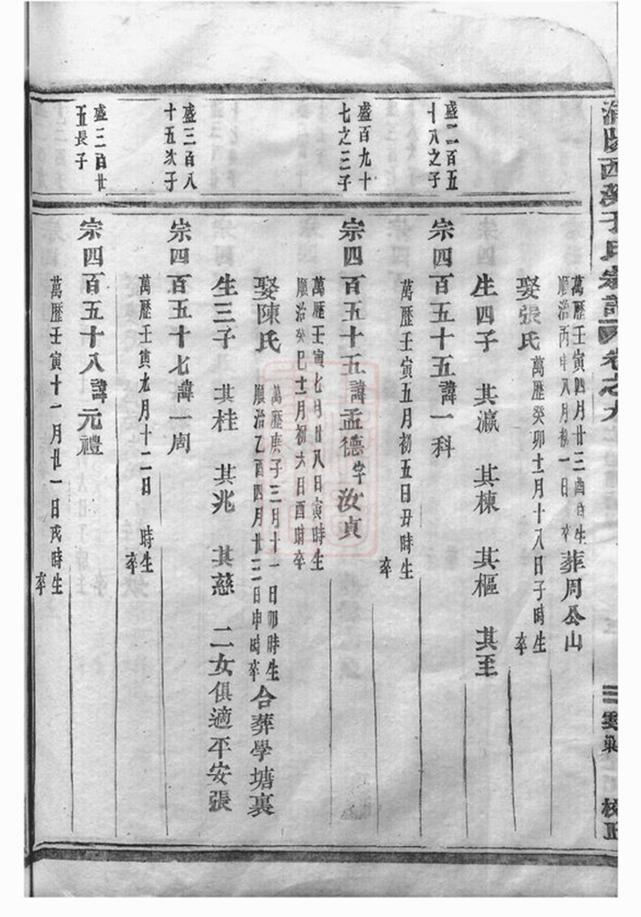 西溪于氏宗譜 卷之九
萬歷壬寅四月廿三酉時生
順治丙申八月初一日 卒
葬周公山
娶張氏
萬歷癸卯十一月十八日子時生
卒
生四子 其瀛 其棟 其樞 其至
盛二百五
十八之子
宗四百五十五諱一科
萬歷壬寅五月初五日丑時生
卒
盛百九十
七之三子
宗四百五十五諱孟德字汝貞
萬歷壬寅七月廿八日寅時生
順治癸巳十一月初六日酉時卒
娶陳氏
萬歷庚子三月十一日卯時生
順治乙酉四月廿三日申時卒
合葬學塘裏
生三子 其桂 其兆 其慈 二女俱適平安張
盛三百八
十五次子
宗四百五十七諱一周
萬歷壬寅九月十二日 時生
卒
盛三百廿
五長子
宗四百五十八諱元禮
萬歷壬寅十一月廿一日戌時生
卒